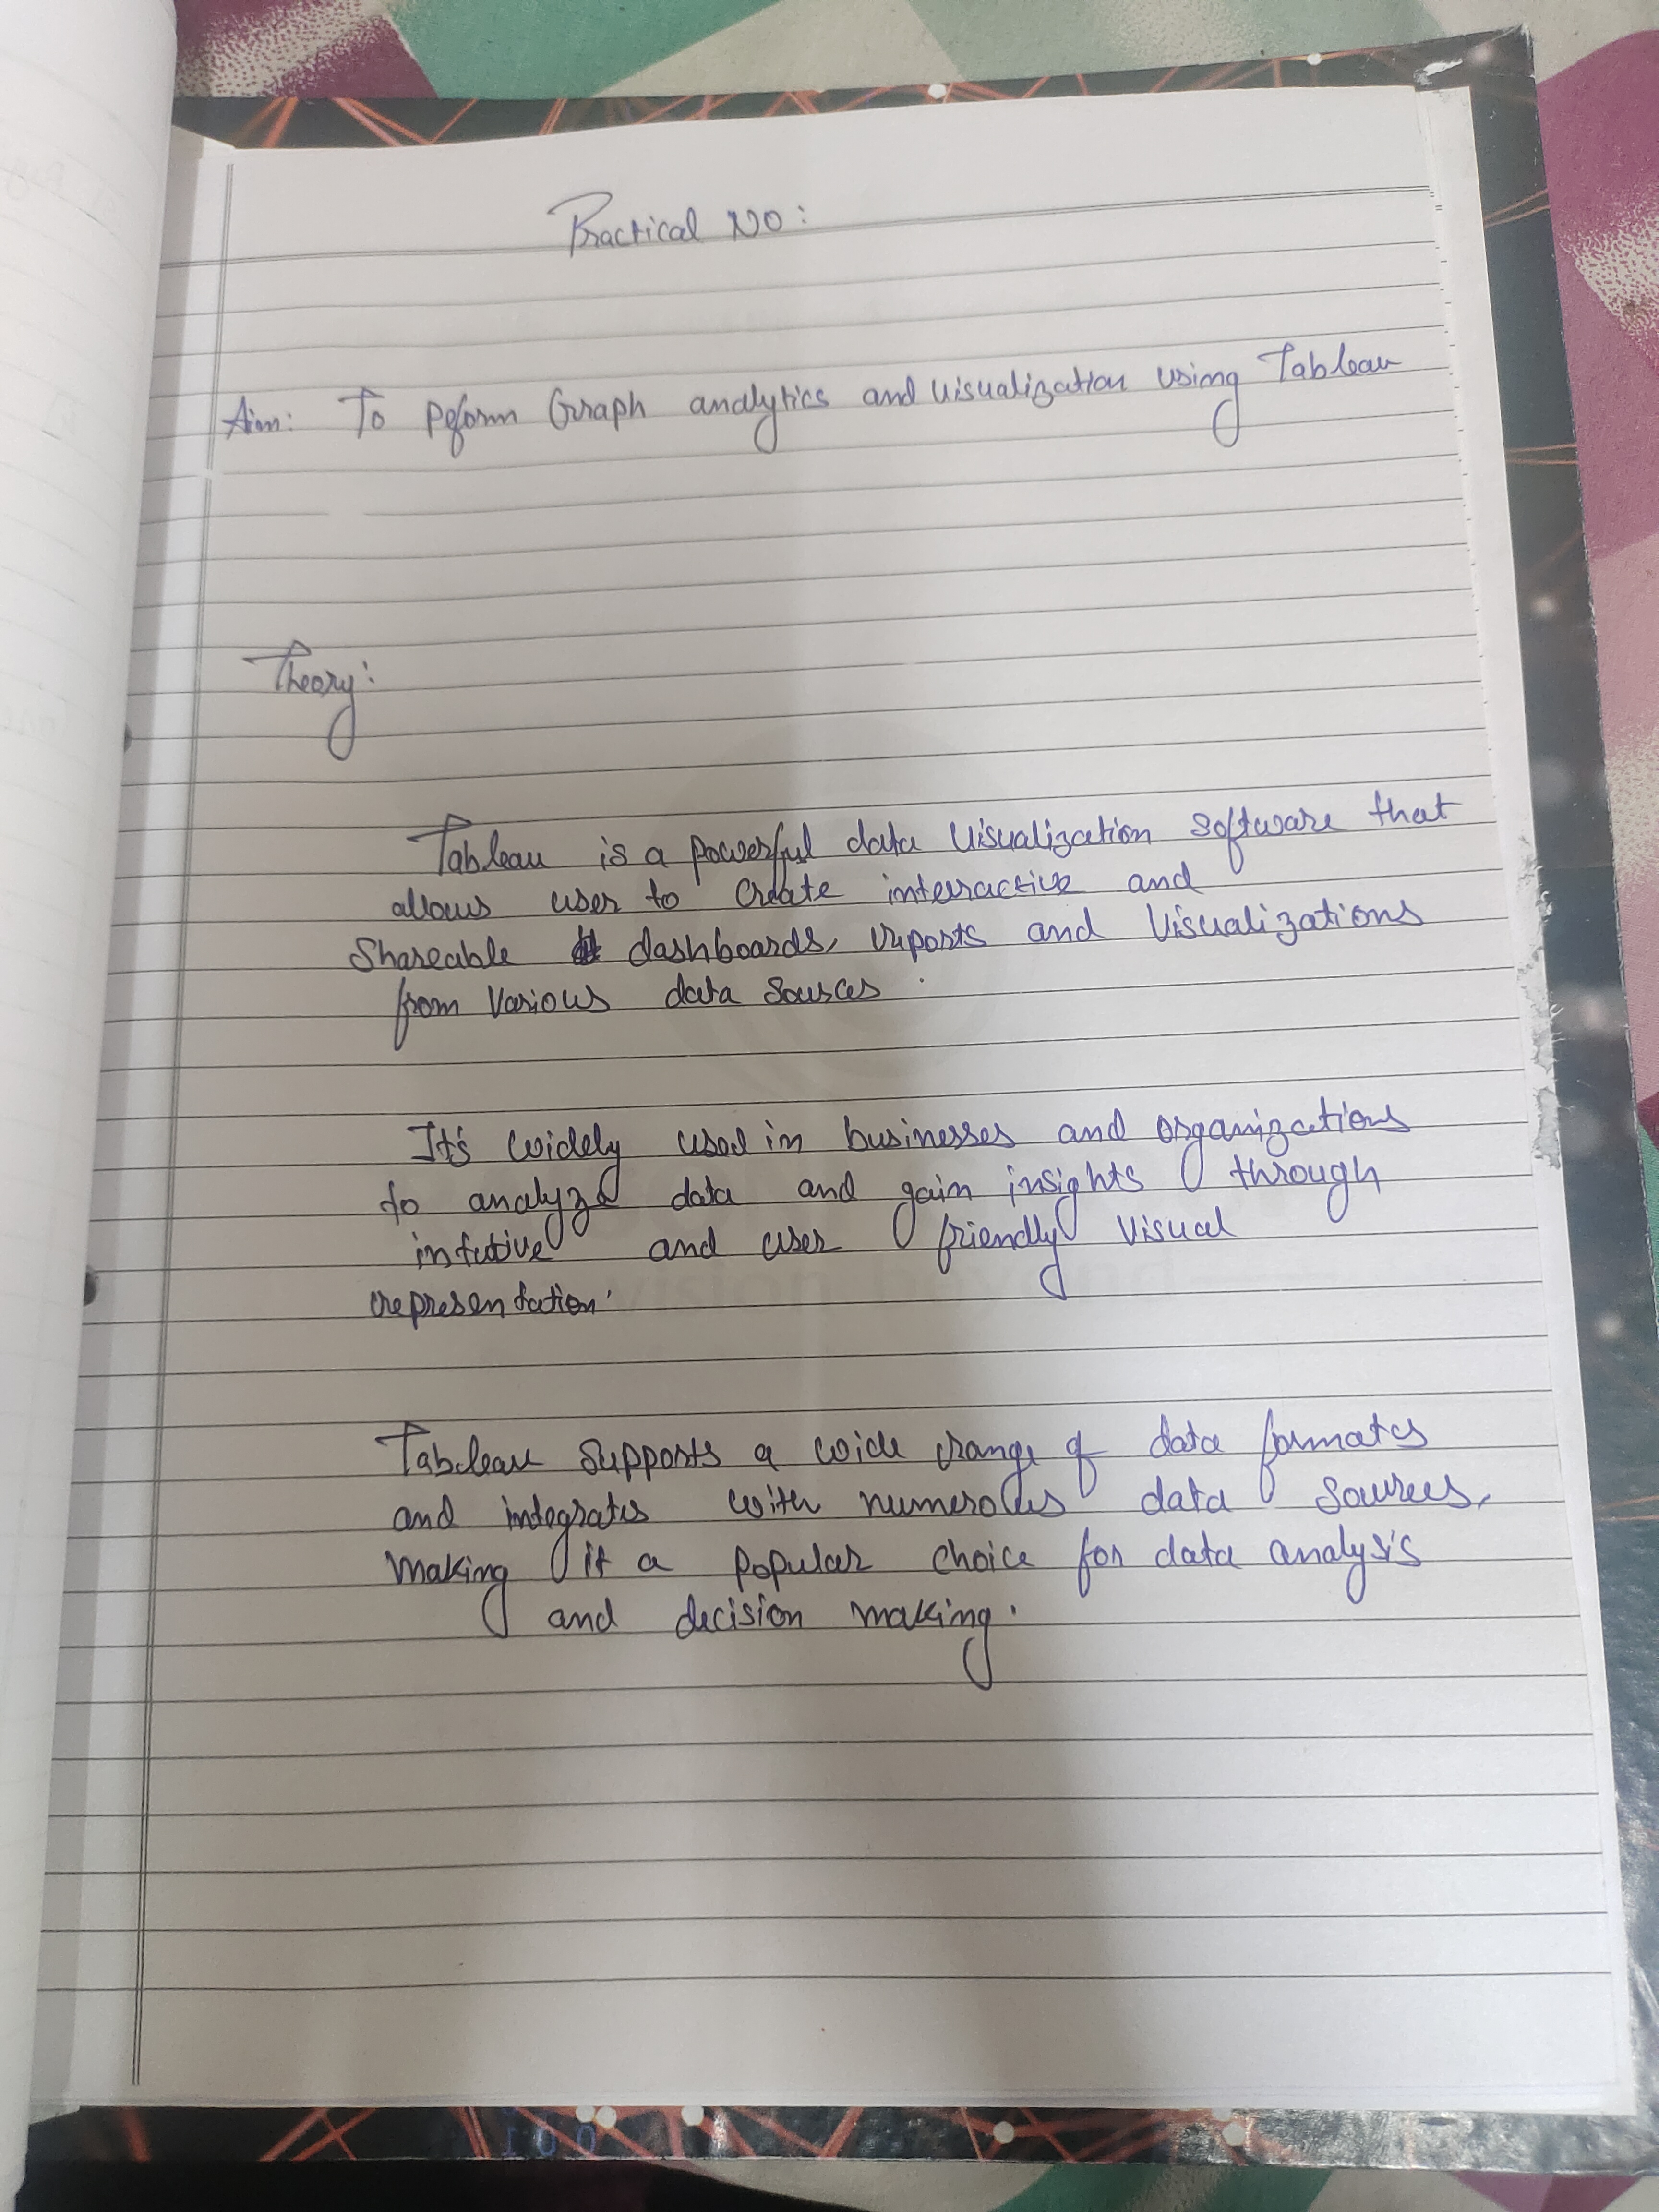 Practical No:
Aim: To peform Graph analytics and visualization using Tableau
Theory:
Tableau is a powerful data visualization software that
allows user to create interactive and
Shareable dashboards, reports and visualizations
from various data sources.
It's widely used in businesses and organizations
to analyze data and gain insights through
intutive and user friendly visual
representation.
Tableau supports a wide range of data formats
and integrates with numerous data sources,
making it a popular choice for data analysis
and decision making.